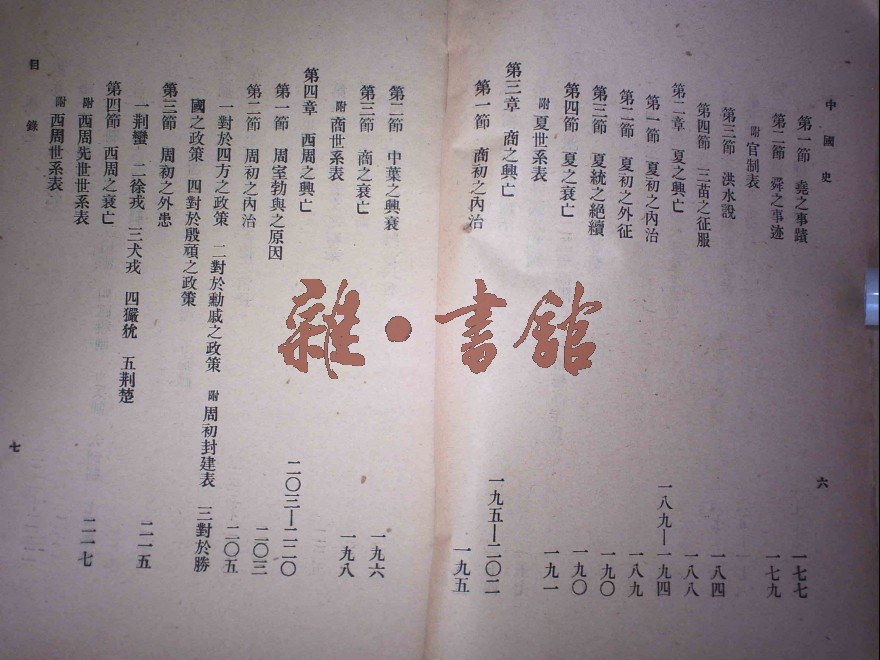 中國史
六
第一節 堯之事蹟 一七七
第二節 舜之事迹 一七九
附 官制表
第三節 洪水說 一八四
第四節 三苗之征服 一八八
第二章 夏之興亡 一八九—一九四
第一節 夏初之內治 一八九
第二節 夏初之外征 一九〇
第三節 夏統之絕續 一九〇
第四節 夏之衰亡 一九一
附 夏世系表
第三章 商之興亡 一九五—二〇二
第一節 商初之內治 一九五
第二節 中葉之興衰 一九六
第三節 商之衰亡 一九八
附 商世系表
第四章 西周之興亡 二〇三—二二〇
第一節 周室勃興之原因 二〇三
第二節 周初之內治 二〇五
一對於四方之政策 二對於勳戚之政策 附周初封建表 三對於勝
國之政策 四對於殷頑之政策
第三節 周初之外患 二一五
一荆蠻 二徐戎 三犬戎 四玁狁 五荆楚
第四節 西周之衰亡 二一七
附 西周先世世系表
附 西周世系表
目錄
七
雜·書館